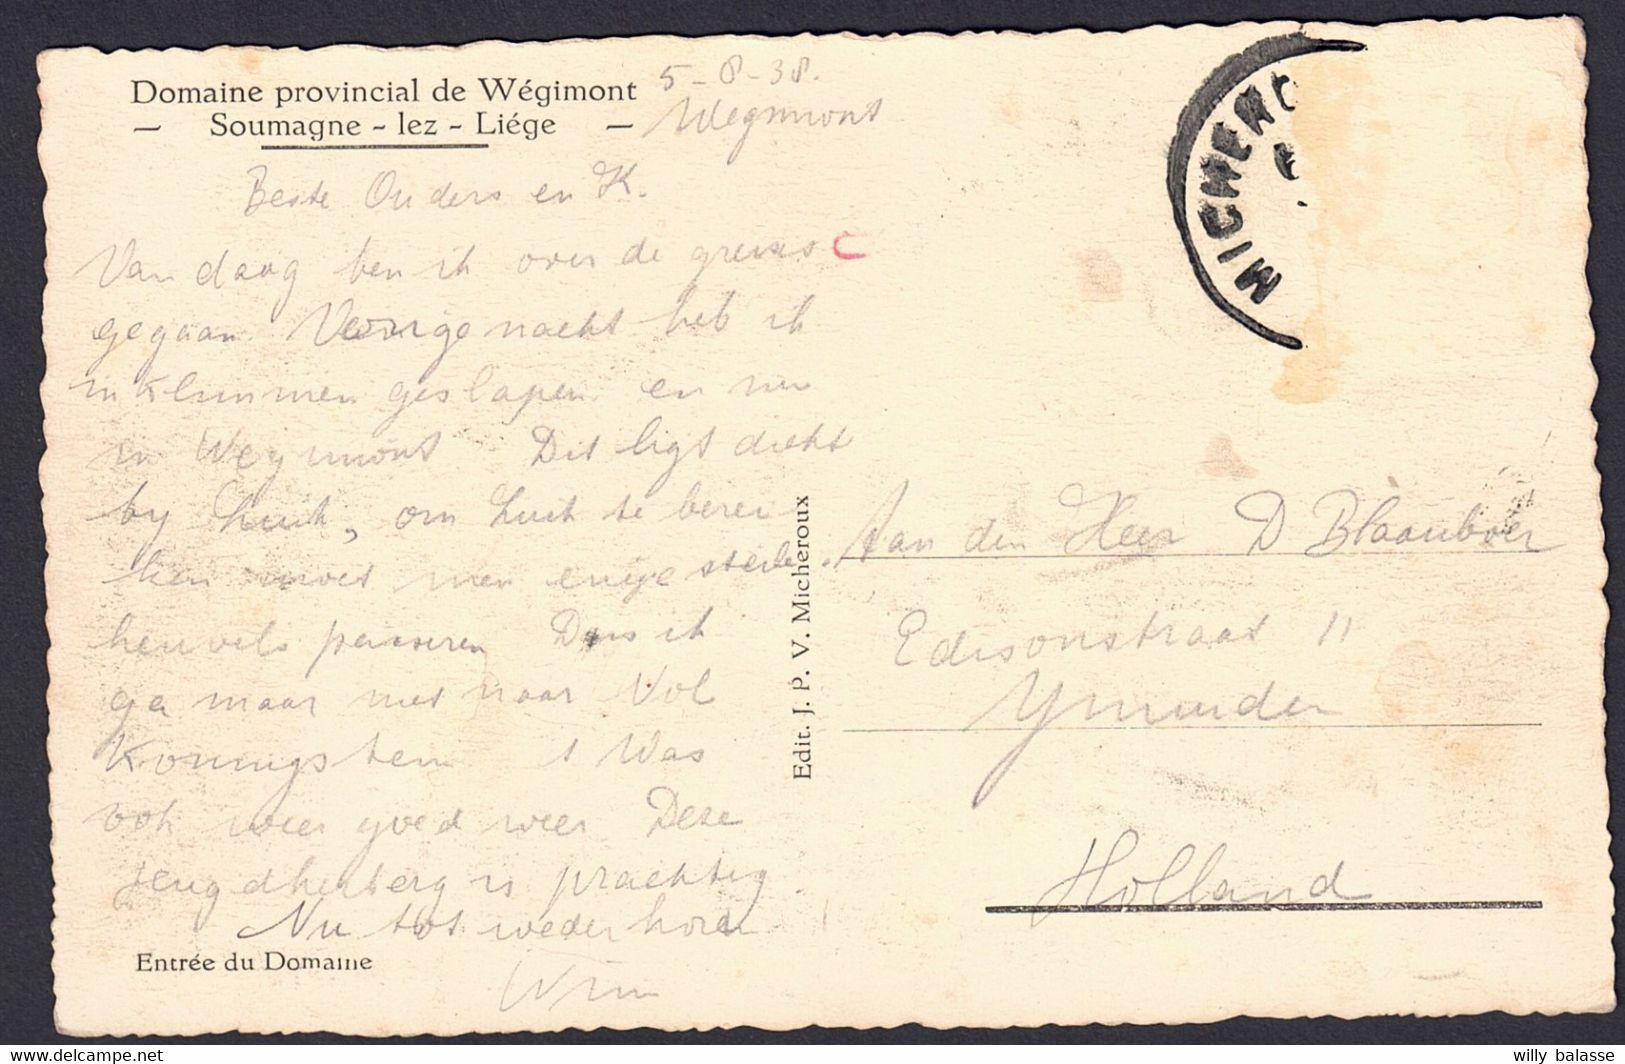 Domaine provincial de Wégimont
— Soumagne - lez - Liége —
5-8-38.
Wegimont
Beste Ouders en K.
Van daag ben ik over de grens
gegaan. Vorige nacht heb ik
in Klimmen geslapen en nu
in Wegimont Dit ligt dicht
by Luik, om Luik te berei
ken moet men enige steile
heuvels passeren Dus ik
ga maar niet naar Vol
Konnigstein t Was
ook weer goed weer Deze
jeugdherberg is prachtig.
Nu tot weder horen
Wim
Entrée du Domaine
Edit. J. P. V. Micheroux
MICHERO
Aan den Heer D Blaauboer
Edisonstraat 11
Ymuiden
Holland
willy balasse